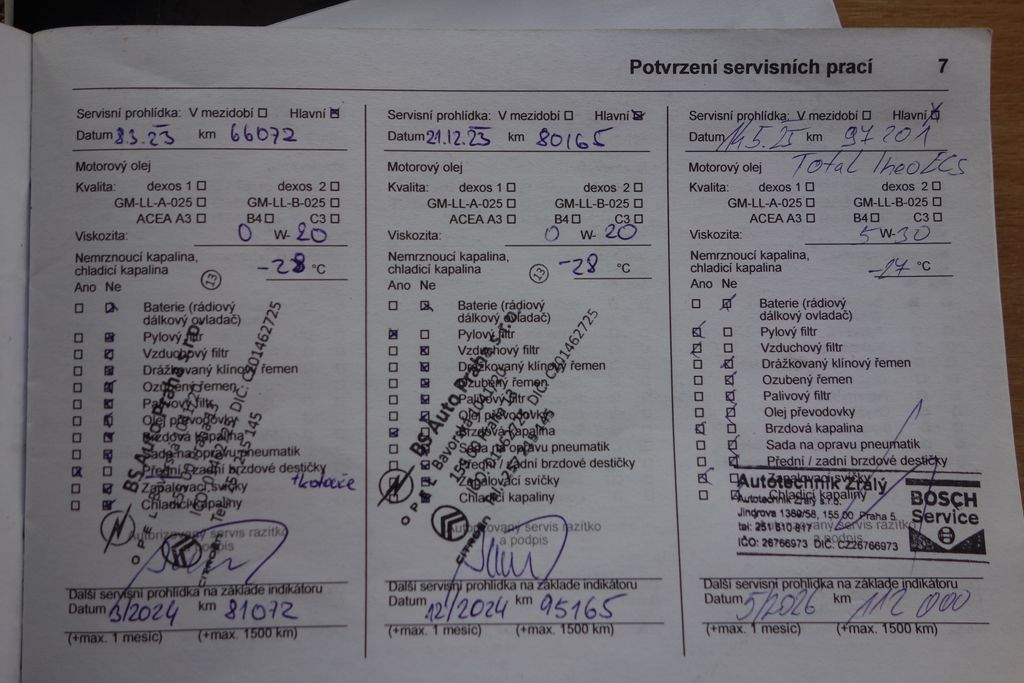 Potvrzení servisních prací 7
Servisní prohlídka: V mezidobí Hlavní
Datum 8.3.23 km 66072
Motorový olej
Kvalita: dexos 1 dexos 2
GM-LL-A-025 GM-LL-B-025
ACEA A3 B4 C3
Viskozita: 0 W- 20
Nemrznoucí kapalina,
chladicí kapalina -28 °C
13
Ano Ne
Baterie (rádiový
dálkový ovladač)
Pylový filtr
Vzduchový filtr
Drážkovaný klínový řemen
Ozubený řemen
Palivový filtr
Olej převodovky
Brzdová kapalina
Sada na opravu pneumatik
Přední / zadní brzdové destičky
+kotouče
Zapalovací svíčky
Chladicí kapaliny
BS Auto Praha s.r.o.
DIČ: CZ01462725
OPEL
CITROËN
Autorizovaný servis razítko
a podpis
Další servisní prohlídka na základe indikátoru
Datum 3/2024 km 81072
(+max. 1 mesíc) (+max. 1500 km)
Servisní prohlídka: V mezidobí Hlavní
Datum 21.12.23 km 80165
Motorový olej
Kvalita: dexos 1 dexos 2
GM-LL-A-025 GM-LL-B-025
ACEA A3 B4 C3
Viskozita: 0 W- 20
Nemrznoucí kapalina,
chladicí kapalina -28 °C
13
Ano Ne
Baterie (rádiový
dálkový ovladač)
Pylový filtr
Vzduchový filtr
Drážkovaný klínový řemen
Ozubený řemen
Palivový filtr
Olej převodovky
Brzdová kapalina
Sada na opravu pneumatik
Přední / zadní brzdové destičky
Zapalovací svíčky
Chladicí kapaliny
BS Auto Praha s.r.o.
DIČ: CZ01462725
OPEL
CITROËN
Autorizovaný servis razítko
a podpis
Další servisní prohlídka na základe indikátoru
Datum 12/2024 km 95165
(+max. 1 mesíc) (+max. 1500 km)
Servisní prohlídka: V mezidobí Hlavní
Datum 14.5.25 km 97201
Motorový olej Total IneoECS
Kvalita: dexos 1 dexos 2
GM-LL-A-025 GM-LL-B-025
ACEA A3 B4 C3
Viskozita: 5 W- 30
Nemrznoucí kapalina,
chladicí kapalina °C
Ano Ne
Baterie (rádiový
dálkový ovladač)
Pylový filtr
Vzduchový filtr
Drážkovaný klínový řemen
Ozubený řemen
Palivový filtr
Olej převodovky
Brzdová kapalina
Sada na opravu pneumatik
Přední / zadní brzdové destičky
Zapalovací svíčky
Chladicí kapaliny
Autotechnik Zralý
Autotechnik Zralý s.r.o.
Jindrova 1389/58, 155 00 Praha 5
tel: 251 610 817
IČO: 26766973 DIČ: CZ26766973
BOSCH
Service
Další servisní prohlídka na základe indikátoru
Datum 5/2026 km 112 000
(+max. 1 mesíc) (+max. 1500 km)